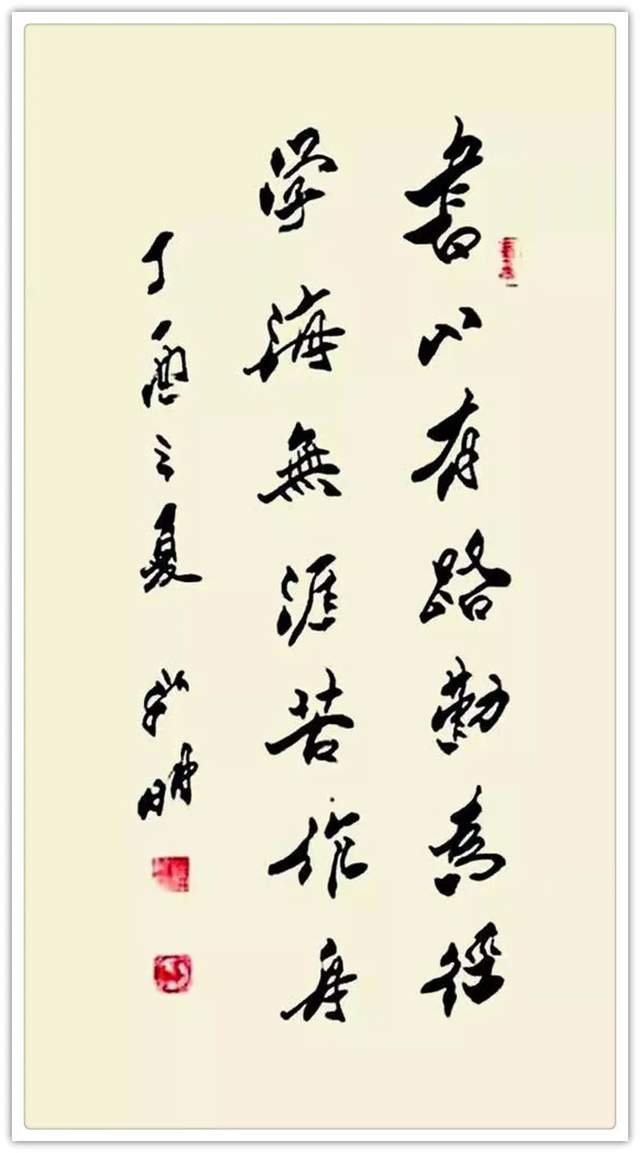 書山有路勤為徑
學海無涯苦作舟
丁酉之夏 明